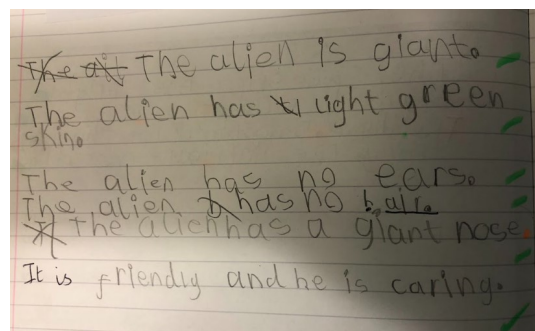 The alien is giant.
The alien has light green
skin.
The alien has no ears.
The alien has no hair.
The alien has a giant nose
It is friendly and he is caring.